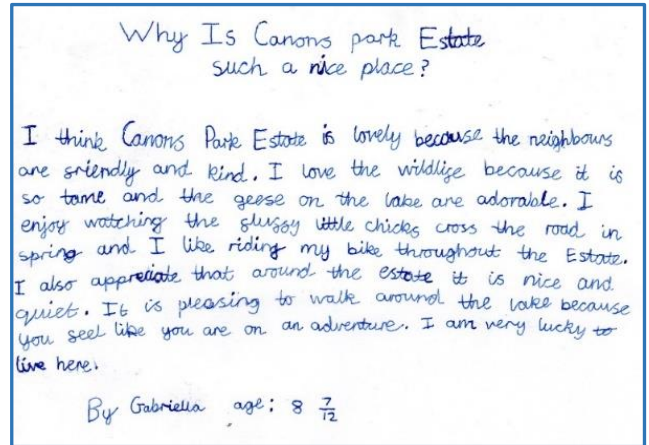 Why Is Canons park Estate
such a nice place?
I think Canons Park Estate is lovely because the neighbours
are friendly and kind. I love the wildlife because it is
so tame and the geese on the lake are adorable. I
enjoy watching the fluffy little chicks cross the road in
spring and I like riding my bike throughout the Estate.
I also appreciate that around the estate it is nice and
quiet. It is pleasing to walk around the lake because
you feel like you are on an adventure. I am very lucky to
live here.
By Gabriella age: 8 7/12